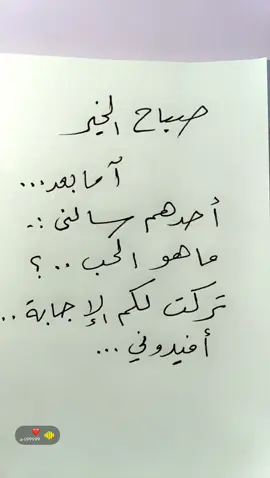 صباح الخير
آما بعد...
أحدهم سالني :.
ما هو الحب ..؟
تركت لكم الإجابة ..
أفيدوني ...